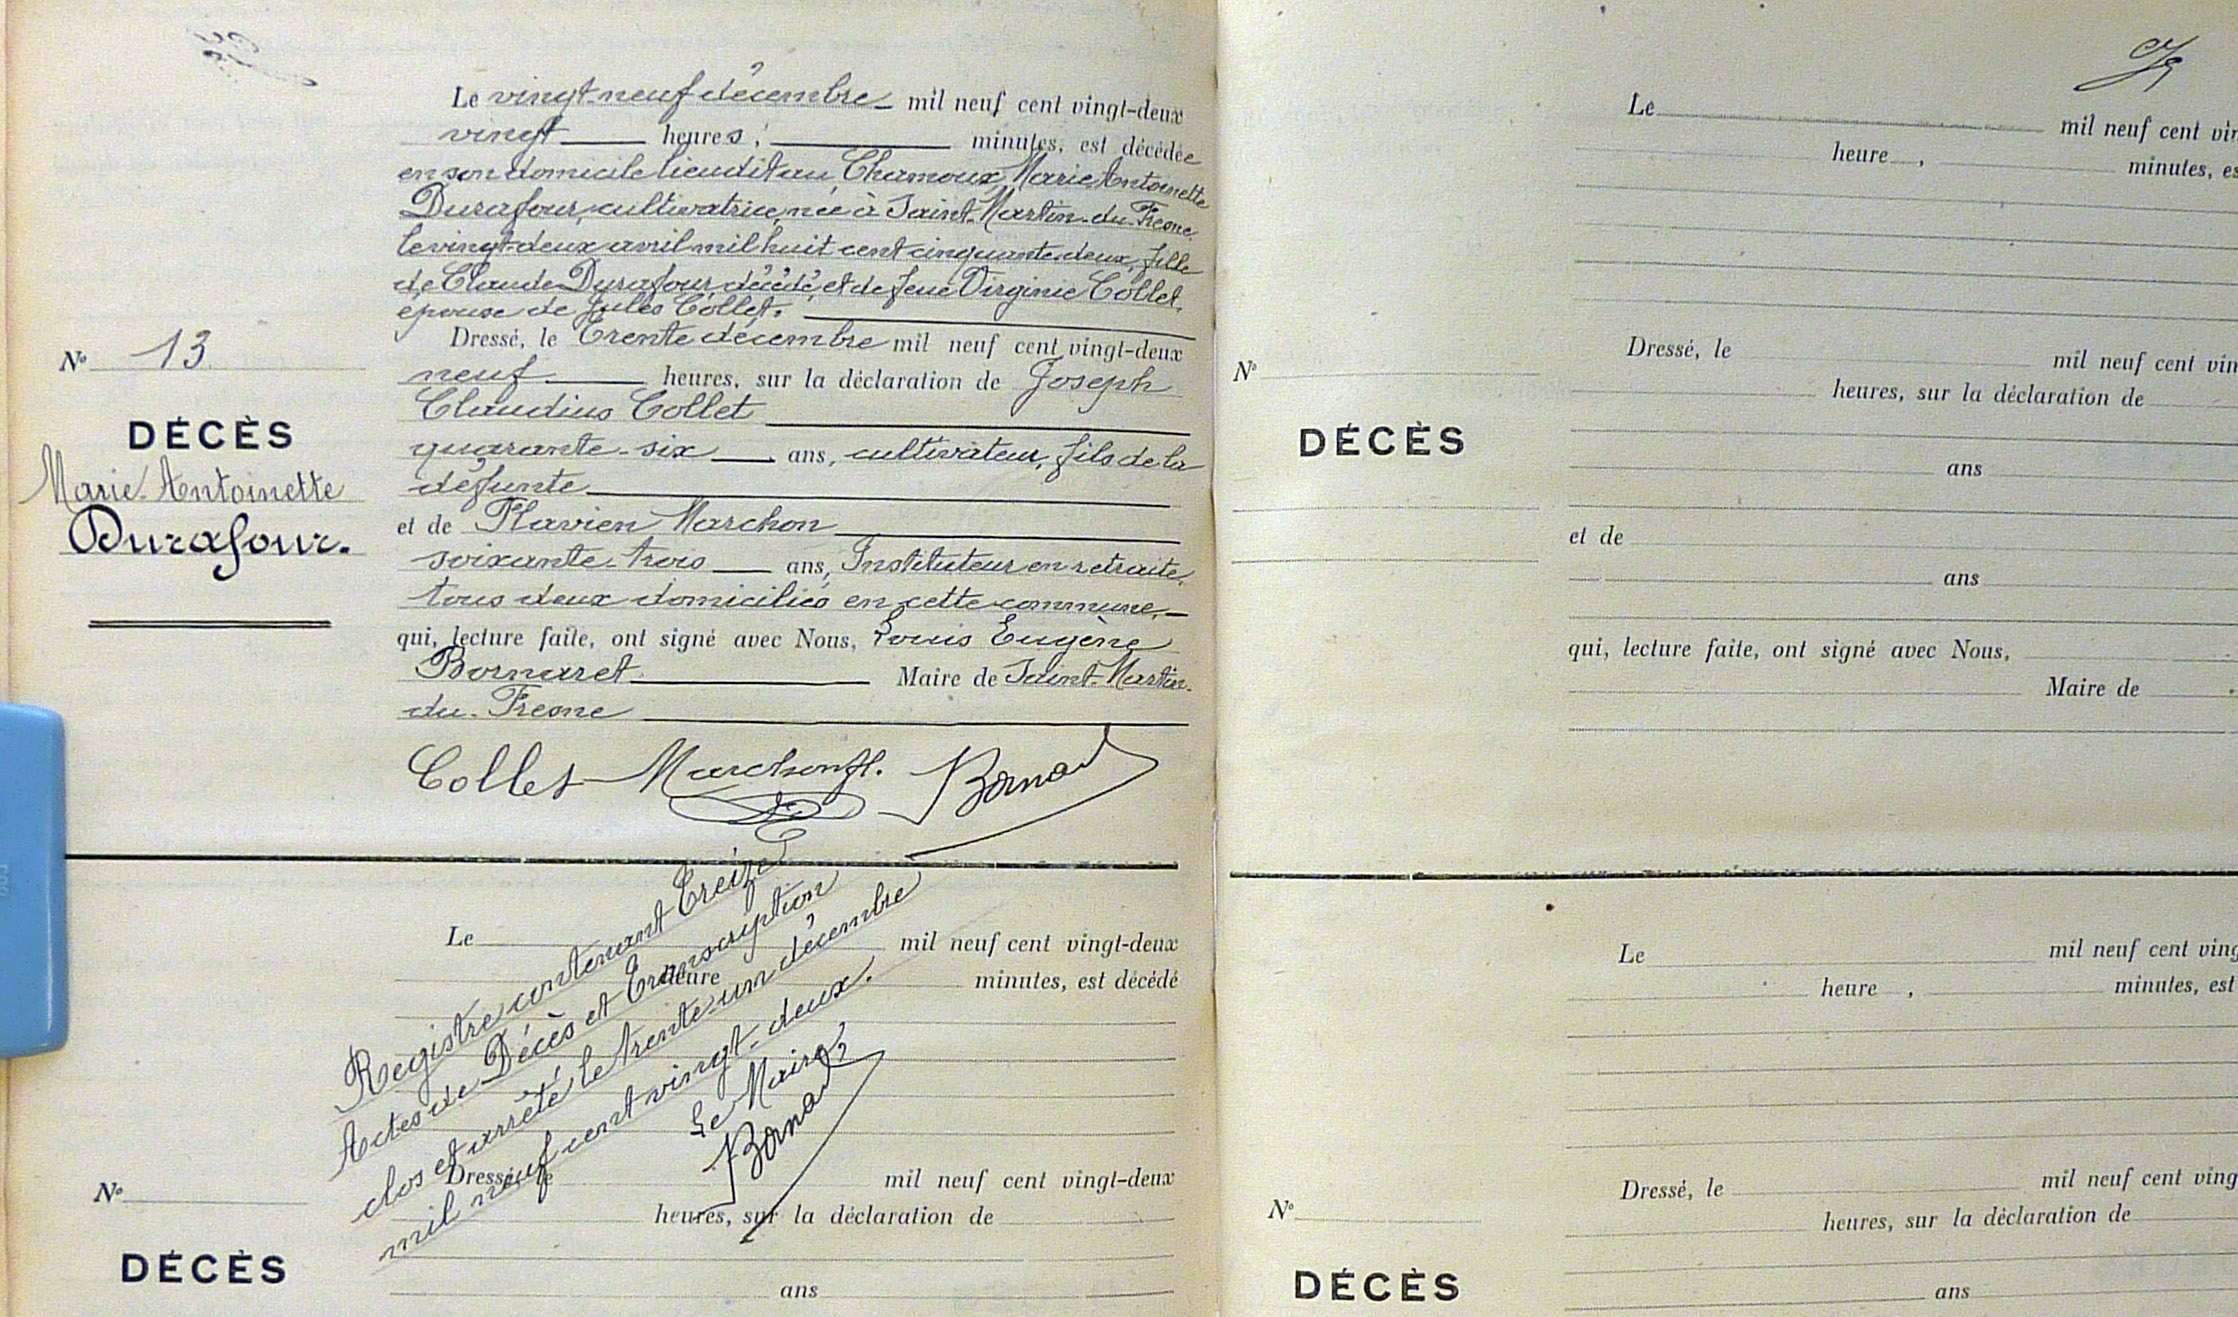 Le vingt-neuf décembre mil neuf cent vingt-deux
vingt heures, minutes, est décédée
en son domicile lieudit au Chamoux, Marie Antoinette
Durafour, cultivatrice, née à Saint-Martin-du-Fresne
le vingt-deux avril mil huit cent cinquante deux, fille
de Claude Durafour, décédé, et de feue Virginie Collet,
épouse de Jules Collet.
Dressé, le trente décembre mil neuf cent vingt-deux
neuf heures, sur la déclaration de Joseph
Claudius Collet
quarante-six ans, cultivateur, fils de la
défunte
et de Flavien Marchon
soixante-trois ans, Instituteur en retraite,
tous deux domiciliés en cette commune,
qui, lecture faite, ont signé avec Nous, Louis Eugène
Bornaret Maire de Saint-Martin-
du-Fresne
Collet Marchon fl. Bornar
N° 13
DÉCÈS
Marie-Antoinette
Durafour.
Registre contenant treize
Actes de Décès et transcription
clos et arrêté le trente-un décembre
mil neuf cent vingt-deux.
Le Maire,
Bornar
Le mil neuf cent vingt-deux
heure minutes, est décédé
Dressé, le mil neuf cent vingt-deux
heures, sur la déclaration de
N°
DÉCÈS
ans
Le mil neuf cent vin
heure , minutes, es
Dressé, le mil neuf cent vin
heures, sur la déclaration de
N°
DÉCÈS
ans
et de
ans
qui, lecture faite, ont signé avec Nous,
Maire de
Le mil neuf cent ving
heure , minutes, est
Dressé, le mil neuf cent ving
heures, sur la déclaration de
N°
DÉCÈS
ans